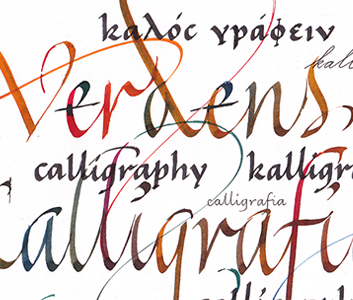 καλός γράφειν
kalli
Verdens
calligraphy kalligra
calligrafia
Kalligrafi